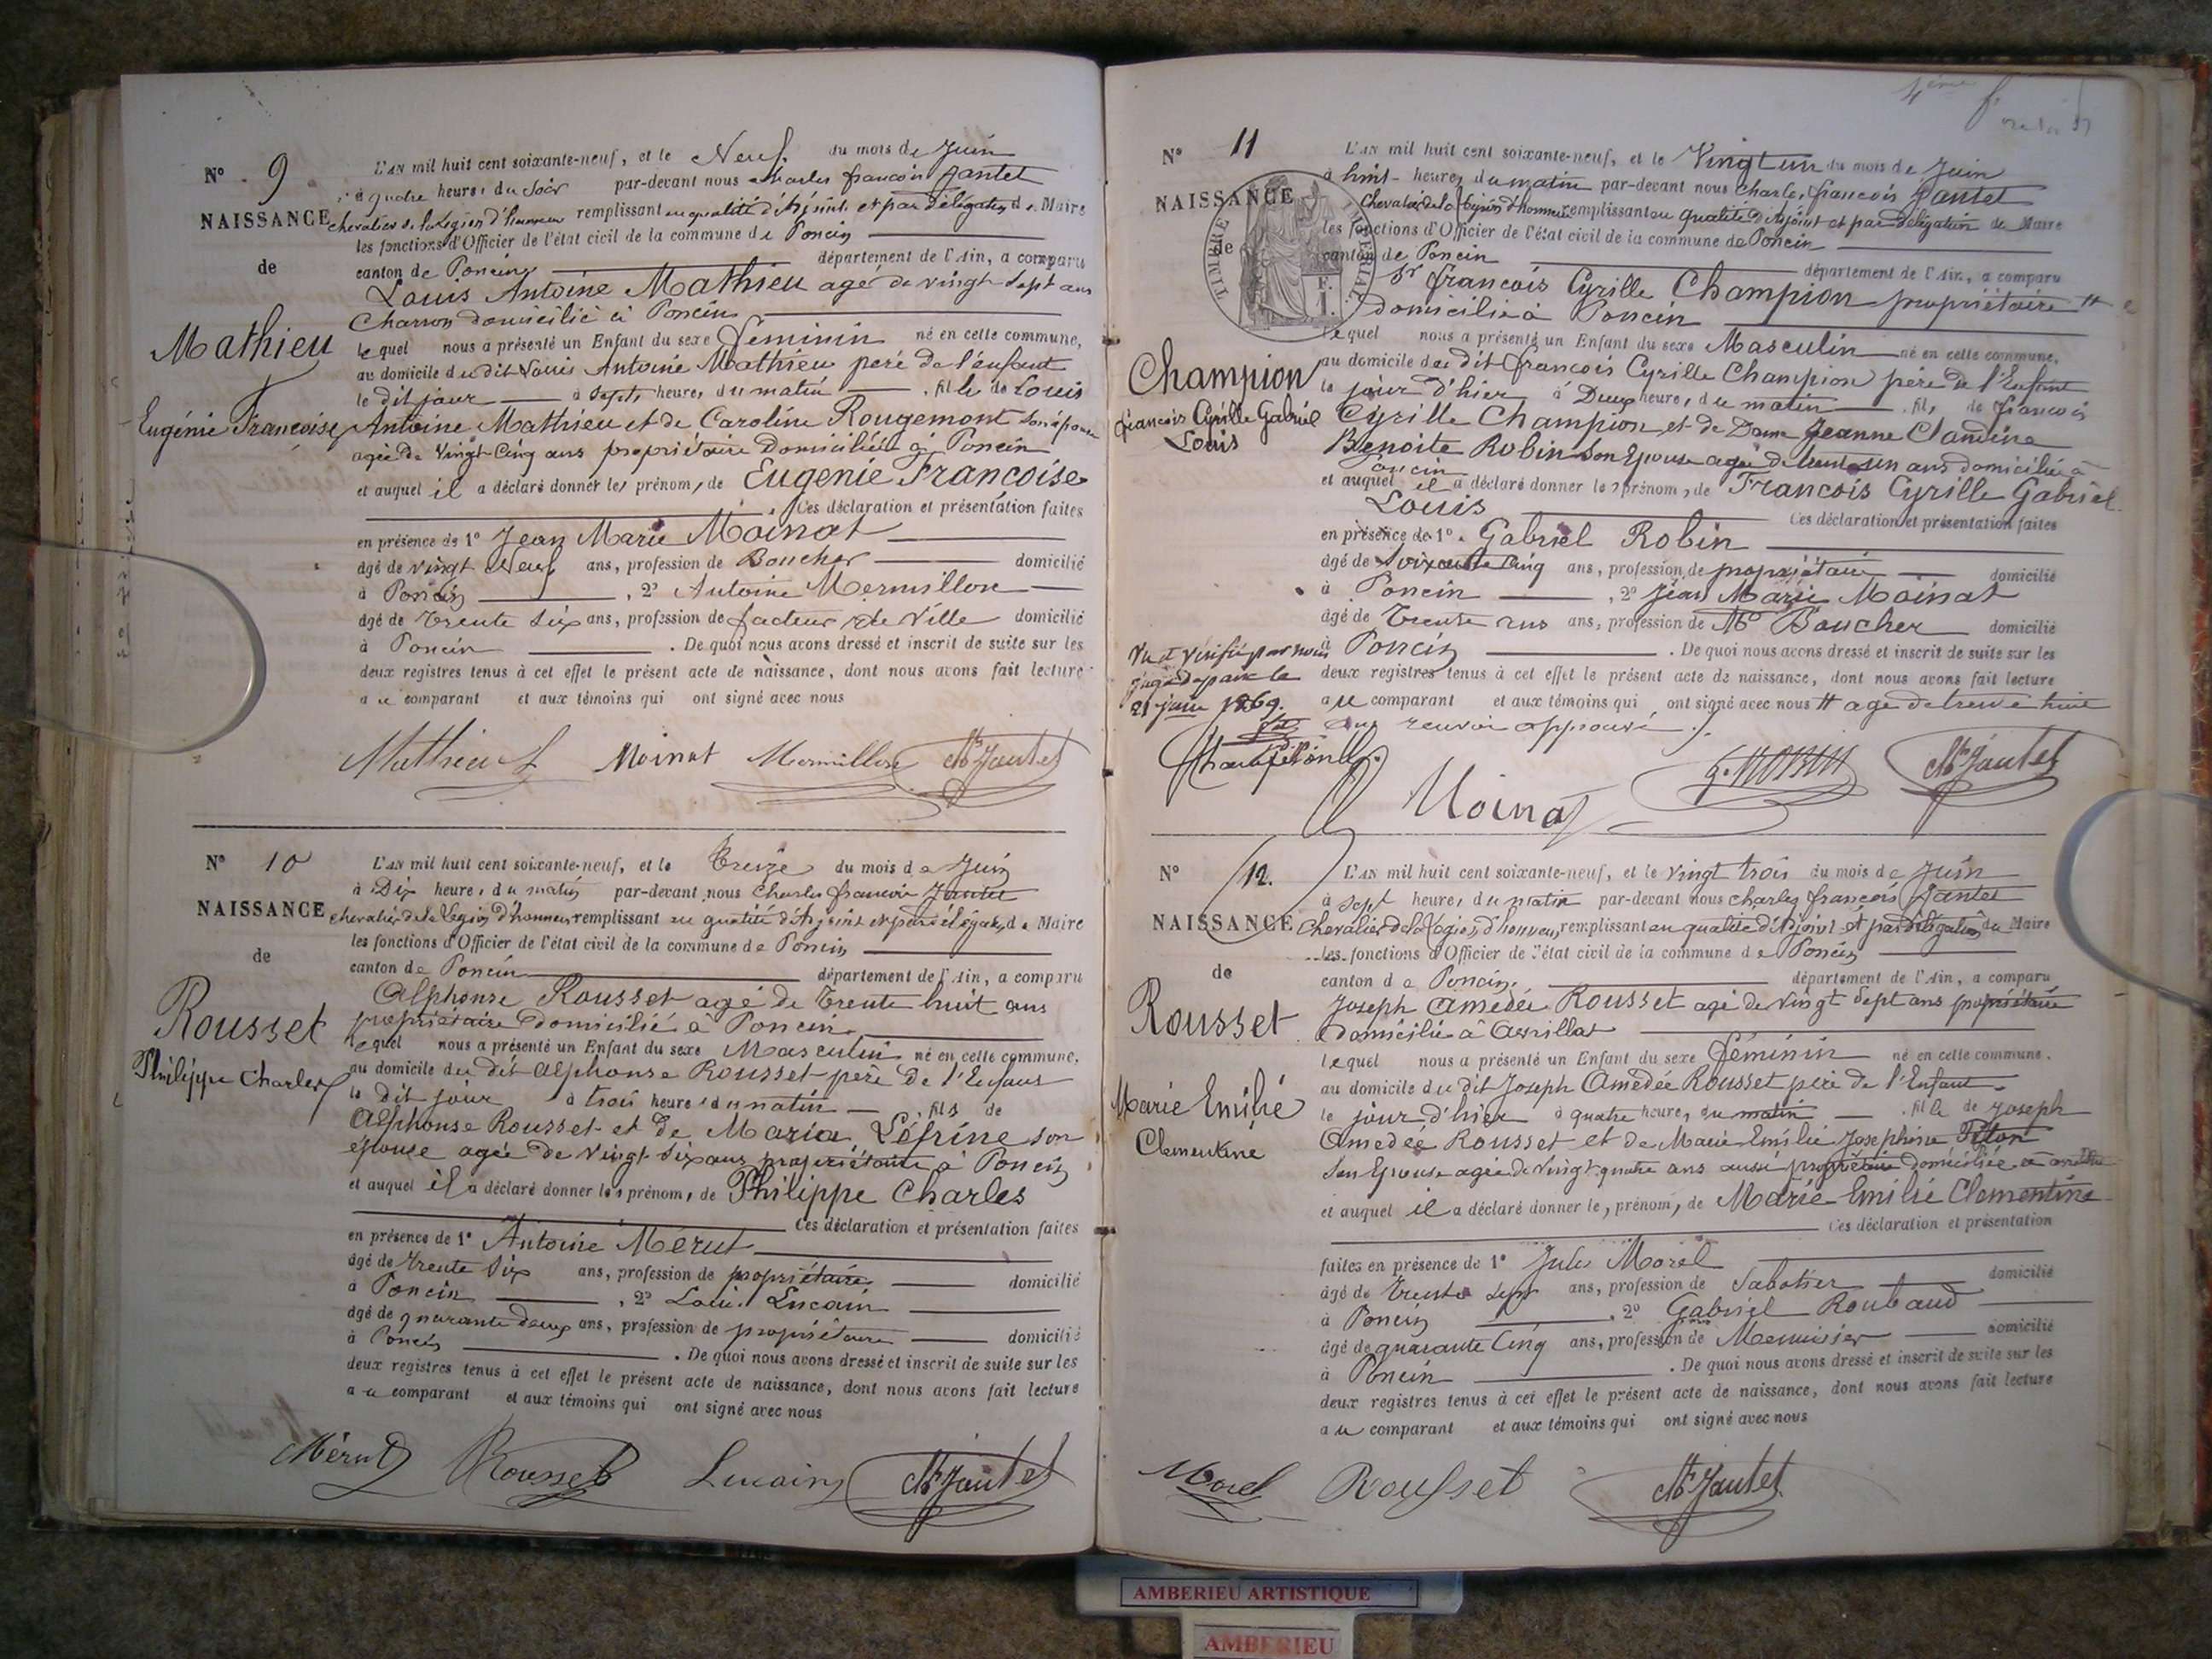 Nº 9
NAISSANCE
de
Mathieu
Eugénie Françoise
L'AN mil huit cent soixante-neuf, et le Neuf du mois de Juin
à quatre heures du Soir par-devant nous Charles françois Jantet
chevalier de la Légion d'honneur remplissant en qualité d'Adjoint et par délégation de Maire
les fonctions d'Officier de l'état civil de la commune de Poncin
canton de Poncin département de l'Ain, a comparu
Louis Antoine Mathieu agé de vingt sept ans
Charron domicilié à Poncin
lequel nous a présenté un Enfant du sexe féminin né en cette commune,
au domicile du dit Louis Antoine Mathieu père de l'enfant
le dit jour à Sept heures du matin , fille de Louis
Antoine Mathieu et de Caroline Rougemont son épouse
agée de Vingt Cinq ans propriétaire Domiciliée à Poncin
et auquel il a déclaré donner les prénoms de Eugenie Francoise
. Ces déclaration et présentation faites
en présence de 1º Jean Marie Moinat
âgé de vingt Neuf ans, profession de Boucher domicilié
à Poncin , 2º Antoine Mermillon
âgé de Trente Six ans, profession de facteur de Ville domicilié
à Poncin . De quoi nous avons dressé et inscrit de suite sur les
deux registres tenus à cet effet le présent acte de naissance, dont nous avons fait lecture
au comparant et aux témoins qui ont signé avec nous
Mathieu Moinat Mermillon Jantet
Nº 10
NAISSANCE
de
Rousset
Philippe Charles
L'AN mil huit cent soixante-neuf, et le Treize du mois de Juin
à Dix heures du matin par-devant nous Charles françois Jantet
chevalier de la Légion d'honneur remplissant en qualité d'Adjoint et par délégation de Maire
les fonctions d'Officier de l'état civil de la commune de Poncin
canton de Poncin département de l'Ain, a comparu
Alphonse Rousset agé de Trente huit ans
propriétaire domicilié à Poncin
lequel nous a présenté un Enfant du sexe Masculin né en cette commune,
au domicile du dit Alphonse Rousset père de l'Enfant
le dit jour à trois heures du matin , fils de
Alphonse Rousset et de Maria Léfrine son
épouse agée de Vingt Six ans propriétaire à Poncin
et auquel il a déclaré donner les prénoms de Philippe Charles
Ces déclaration et présentation faites
en présence de 1º Antoine Mérut
âgé de trente Six ans, profession de propriétaire domicilié
à Poncin , 2º Louis Lucain
âgé de quarante deux ans, profession de propriétaire domicilié
à Poncin . De quoi nous avons dressé et inscrit de suite sur les
deux registres tenus à cet effet le présent acte de naissance, dont nous avons fait lecture
au comparant et aux témoins qui ont signé avec nous
Mérut Rousset Lucain Jantet
4ème
Nº 11
NAISSANCE
de
TIMBRE IMPERIAL
Champion
françois Cyrille Gabriel
Louis
L'AN mil huit cent soixante-neuf, et le Vingt un du mois de Juin
à huit heures du matin par-devant nous Charles françois Jantet
Chevalier de la Légion d'honneur remplissant en qualité d'Adjoint et par délégation de Maire
les fonctions d'Officier de l'état civil de la commune de Poncin
canton de Poncin département de l'Ain, a comparu
Sr françois Cyrille Champion propriétaire #
Domicilié à Poncin
lequel nous a présenté un Enfant du sexe Masculin né en cette commune,
au domicile du dit françois Cyrille Champion père de l'Enfant
le jour d'hier à Deux heures du matin , fils de françois
Cyrille Champion et de Dame Jeanne Claudine
Benoite Robin son Epouse agée de trente un ans domiciliée à
Poncin
et auquel il a déclaré donner les prénoms de François Cyrille Gabriel
Louis Ces déclaration et présentation faites
en présence de 1º Gabriel Robin
âgé de Soixante Cinq ans, profession de propriétaire domicilié
à Poncin , 2º Jean Marie Moinat
âgé de Trente ans ans, profession de Md Boucher domicilié
à Poncin . De quoi nous avons dressé et inscrit de suite sur les
deux registres tenus à cet effet le présent acte de naissance, dont nous avons fait lecture
au comparant et aux témoins qui ont signé avec nous # agé de trente huit
ans renvoi approuvé
Vu et vérifié par nous
juge de paix le
21 juin 1869.
Moinat G. ROBIN Jantet
Nº 12.
NAISSANCE
de
Rousset
Marie Emilie
Clementine
L'AN mil huit cent soixante-neuf, et le vingt trois du mois de Juin
à sept heures du matin par-devant nous charles françois Jantet
Chevalier de la Légion d'honneur, remplissant en qualité d'Adjoint et par délégation du Maire
les fonctions d'Officier de l'état civil de la commune de Poncin
canton de Poncin département de l'Ain, a comparu
Joseph Amédée Rousset agé de vingt Sept ans propriétaire
domicilié à Avrillat
lequel nous a présenté un Enfant du sexe féminin né en cette commune,
au domicile du dit Joseph Amédée Rousset père de l'Enfant
le jour d'hier à quatre heures du matin , fille de Joseph
Amedée Rousset et de Marie Emilie Josephine Piton
Son Epouse agée de Vingt quatre ans aussi propriétaire domiciliée à
et auquel il a déclaré donner les prénoms de Marie Emilie Clementine
Ces déclaration et présentation
faites en présence de 1º Jules Morel
âgé de Trente Sept ans, profession de Sabotier domicilié
à Poncin , 2º Gabriel Roubaud
âgé de quarante Cinq ans, profession de Menuisier domicilié
à Poncin . De quoi nous avons dressé et inscrit de suite sur les
deux registres tenus à cet effet le présent acte de naissance, dont nous avons fait lecture
au comparant et aux témoins qui ont signé avec nous
Morel Rousset Jantet
AMBERIEU ARTISTIQUE
AMBERIEU